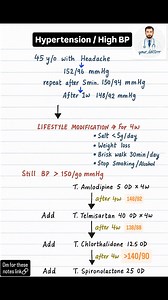 Hypertension / High BP
your.doctorr
45 y/o with Headache
152/96 mmHg
repeat after 5min. 150/94 mmHg
After 1w 148/92 mmHg
LIFESTYLE MODIFICATION → for 4w
• Salt <5g/day
• Weight loss
• Brisk walk 30min/day
• Stop Smoking/Alcohol
Still BP > 150/90 mmHg
T. Amlodipine 5 OD × 4w
after 4w 148/92
Add T. Telmisartan 40 OD × 4w
after 4w
Add T. Chlorthalidone 12.5 OD
after 4w >140/90
Add T. Spironolactone 25 OD
Dm for these
notes link